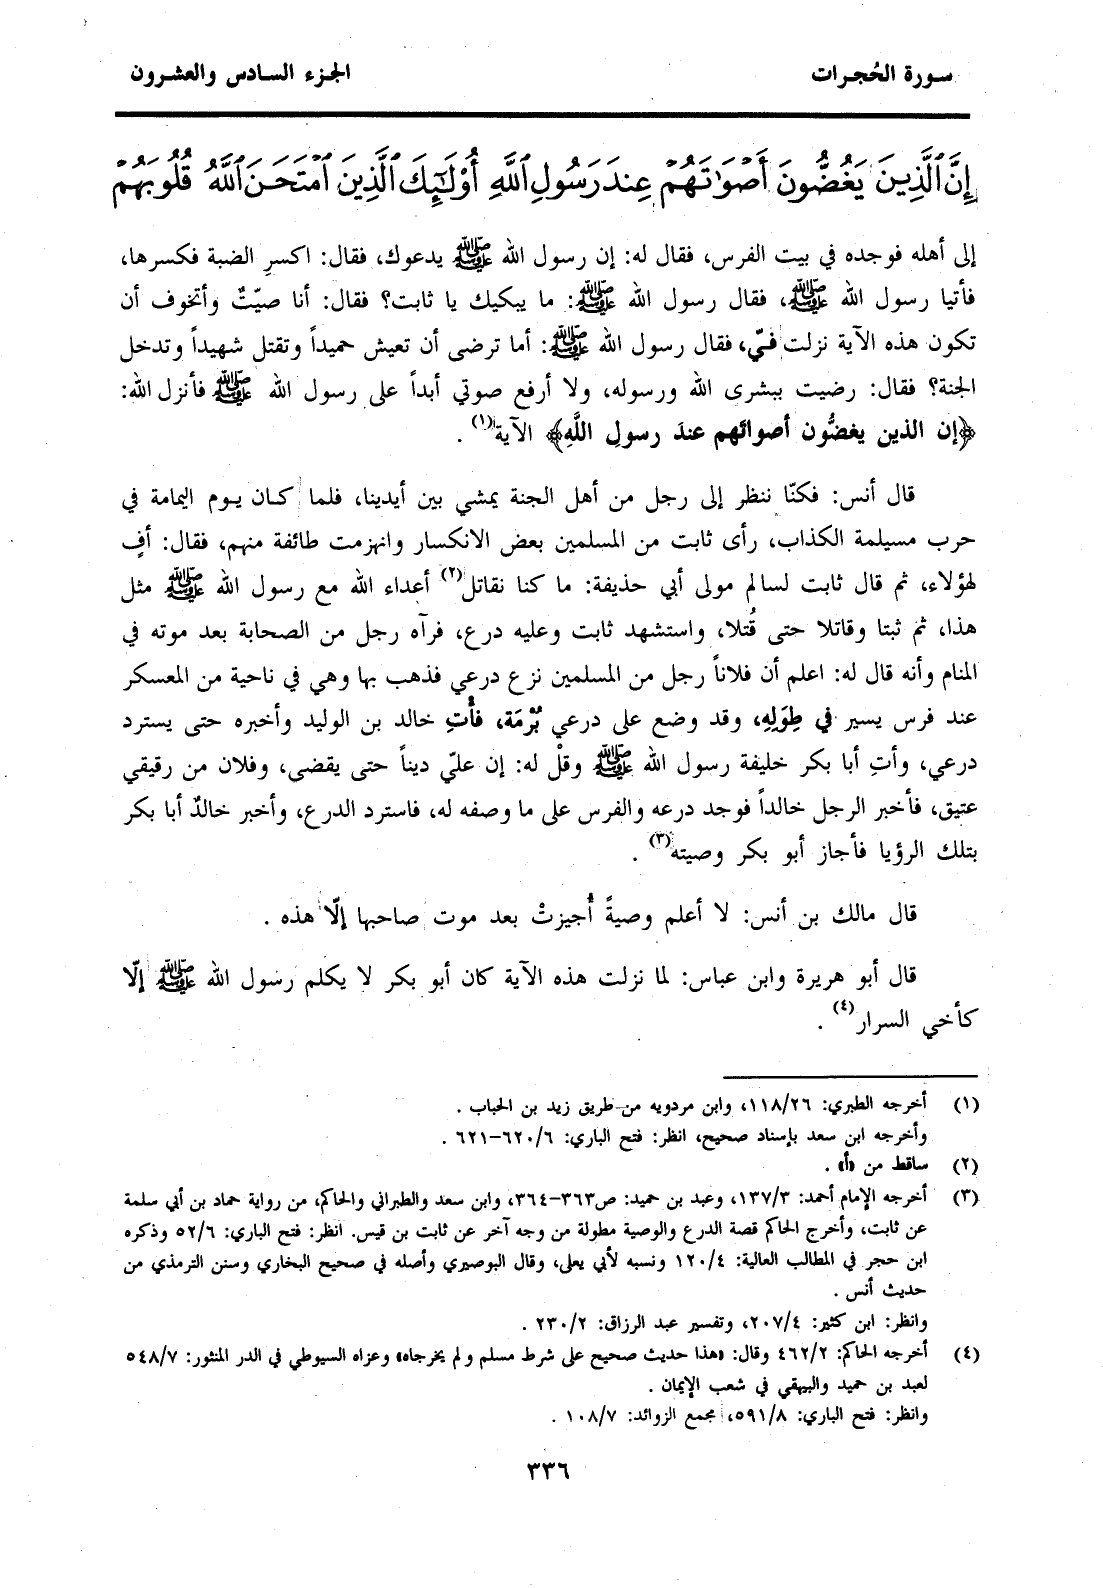 سورة الحُجرات
الجزء السادس والعشرون
إِنَّ ٱلَّذِينَ يَغُضُّونَ أَصْوَٰتَهُمْ عِندَ رَسُولِ ٱللَّهِ أُوْلَٰٓئِكَ ٱلَّذِينَ ٱمْتَحَنَ ٱللَّهُ قُلُوبَهُمْ
إلى أهله فوجده في بيت الفرس، فقال له: إن رسول الله ﷺ يدعوك، فقال: اكسرِ الضبة فكسرها،
فأتيا رسول الله ﷺ، فقال رسول الله ﷺ: ما يبكيك يا ثابت؟ فقال: أنا صيّتٌ وأتخوف أن
تكون هذه الآية نزلت فيّ، فقال رسول الله ﷺ: أما ترضى أن تعيش حميداً وتقتل شهيداً وتدخل
الجنة؟ فقال: رضيت ببشرى الله ورسوله، ولا أرفع صوتي أبداً على رسول الله ﷺ فأنزل الله:
﴿إن الذين يغضُّون أصواتَهم عندَ رسولِ اللَّهِ﴾ الآية(١) .
قال أنس: فكنّا ننظر إلى رجل من أهل الجنة يمشي بين أيدينا، فلما كان يوم اليمامة في
حرب مسيلمة الكذاب، رأى ثابت من المسلمين بعض الانكسار وانهزمت طائفة منهم، فقال: أفٍ
لهؤلاء، ثم قال ثابت لسالم مولى أبي حذيفة: ما كنا نقاتل(٢) أعداء الله مع رسول الله ﷺ مثل
هذا، ثم ثبتا وقاتلا حتى قُتلا، واستشهد ثابت وعليه درع، فرآه رجل من الصحابة بعد موته في
المنام وأنه قال له: اعلم أن فلاناً رجل من المسلمين نزع درعي فذهب بها وهي في ناحية من المعسكر
عند فرس يسير في طِوَلِهِ، وقد وضع على درعي بُرْمَة، فأْتِ خالد بن الوليد وأخبره حتى يسترد
درعي، وأتِ أبا بكر خليفة رسول الله ﷺ وقلْ له: إن عليّ ديناً حتى يقضى، وفلان من رقيقي
عتيق، فأخبر الرجل خالداً فوجد درعه والفرس على ما وصفه له، فاسترد الدرع، وأخبر خالدٌ أبا بكر
بتلك الرؤيا فأجاز أبو بكر وصيته(٣) .
قال مالك بن أنس: لا أعلم وصيةً أُجيزتْ بعد موت صاحبها إلّا هذه .
قال أبو هريرة وابن عباس: لما نزلت هذه الآية كان أبو بكر لا يكلم رسول الله ﷺ إلّا
كأخي السرار(٤) .
(١) أخرجه الطبري: ١١٨/٢٦، وابن مردويه من طريق زيد بن الحباب .
وأخرجه ابن سعد بإسناد صحيح، انظر: فتح الباري: ٦٢٠/٦-٦٢١ .
(٢) ساقط من «أ» .
(٣) أخرجه الإمام أحمد: ١٣٧/٣، وعبد بن حميد: ص٣٦٣-٣٦٤، وابن سعد والطبراني والحاكم، من رواية حماد بن أبي سلمة
عن ثابت، وأخرج الحاكم قصة الدرع والوصية مطولة من وجه آخر عن ثابت بن قيس. انظر: فتح الباري: ٥٢/٦ وذكره
ابن حجر في المطالب العالية: ١٢٠/٤ ونسبه لأبي يعلى، وقال البوصيري وأصله في صحيح البخاري وسنن الترمذي من
حديث أنس .
وانظر: ابن كثير: ٢٠٧/٤، وتفسير عبد الرزاق: ٢٣٠/٢ .
(٤) أخرجه الحاكم: ٤٦٢/٢ وقال: «هذا حديث صحيح على شرط مسلم ولم يخرجاه» وعزاه السيوطي في الدر المنثور: ٥٤٨/٧
لعبد بن حميد والبيهقي في شعب الإيمان .
وانظر: فتح الباري: ٥٩١/٨، مجمع الزوائد: ١٠٨/٧ .
٣٣٦